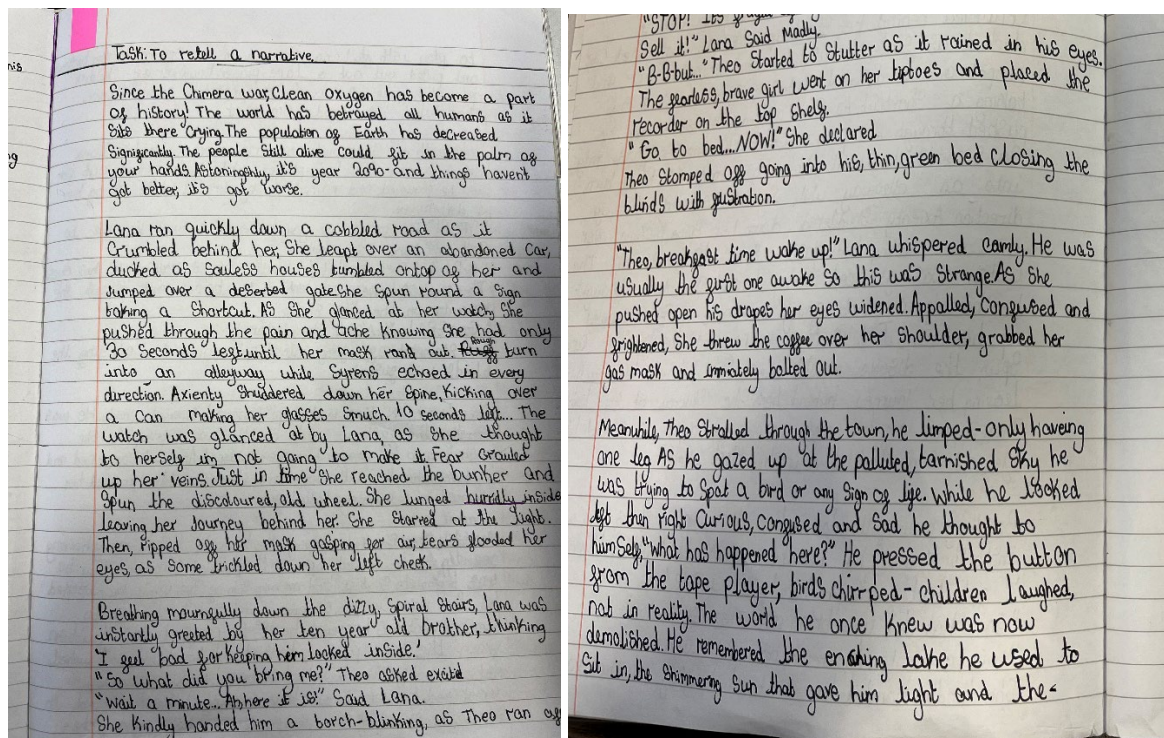 Task: To retell a narrative.
Since the Chimera war, Clean oxygen has become a part
of history! The world has betrayed all humans as it
sits there crying. The population of Earth has decreased
significantly. The people still alive could fit in the palm of
your hands. Astoningshly, it's year 2090-and things havent
got better, it's got worse.
Lana ran quickly down a cobbled road as it
Crumbled behind her, She leapt over an abandoned Car,
ducked as Souless houses tumbled ontop of her and
Jumped over a deserted gate. She Spun round a Sign
taking a Shortcut. As She glanced at her watch, She
pushed through the pain and ache knowing She had only
30 Seconds left until her mask rand out. Rough turn
into an alleyway while Syrens echoed in every
direction. Axienty Shuddered down her Spine, Kicking over
a Can making her glasses Smuch. 10 seconds left... The
watch was glanced at by Lana, as She thought
to herself im not going to make it. Fear Crawled
up her veins. Just in time She reached the bunker and
Spun the discoloured, old wheel. She lunged hurridly inside
leaving her Journey behind her. She Starred at the light.
Then, ripped off her mask gasping for air, tears flooded her
eyes, as Some trickled down her left cheek.
Breathing mournfully down the dizzy, Spiral Stairs, Lana was
instantly greeted by her ten year old brother, thinking
'I feel bad for keeping him locked inside.'
"So what did you bring me?" Theo asked excitd
"Wait a minute... Ah here it is!" Said Lana.
She Kindly handed him a torch-blinking, as Theo ran off
"STOP! Its
Sell it!" Lana Said Madly.
"B-B-but..." Theo Started to Stutter as it rained in his eyes.
The fearless, brave girl went on her tiptoes and placed the
recorder on the top Shelf.
"Go to bed...NOW!" She declared
Theo Stomped off going into his, thin, green bed closing the
blinds with fustration.
"Theo, breakfast time wake up!" Lana whispered camly. He was
usually the first one awake So this was Strange. As She
pushed open his drapes her eyes widened. Appalled, Confused and
frightened, She threw the coffee over her shoulder, grabbed her
gas mask and immiately bolted out.
Meanwhile, Theo Stralled through the town, he limped-only haveing
one leg. As he gazed up at the palluted, tarnished Sky he
was trying to Spat a bird or any Sign of life. While he looked
left then right Curious, Confused and Sad he thought to
himself, "What has happened here?" He pressed the button
from the tape player, birds chirrped-children laughed,
not in reality. The world he once knew was now
demolished. He remembered the lake he used to
Sit in, the shimmering Sun that gave him light and the-